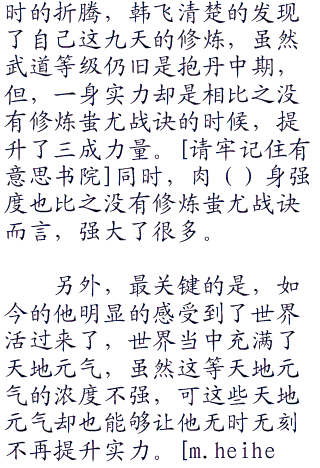 时的折腾，韩飞清楚的发现
了自己这九天的修炼，虽然
武道等级仍旧是抱丹中期，
但，一身实力却是相比之没
有修炼蚩尤战诀的时候，提
升了三成力量。[请牢记住有
意思书院]同时，肉（）身强
度也比之没有修炼蚩尤战诀
而言，强大了很多。
另外，最关键的是，如
今的他明显的感受到了世界
活过来了，世界当中充满了
天地元气，虽然这等天地元
气的浓度不强，可这些天地
元气却也能够让他无时无刻
不再提升实力。[m.heihe